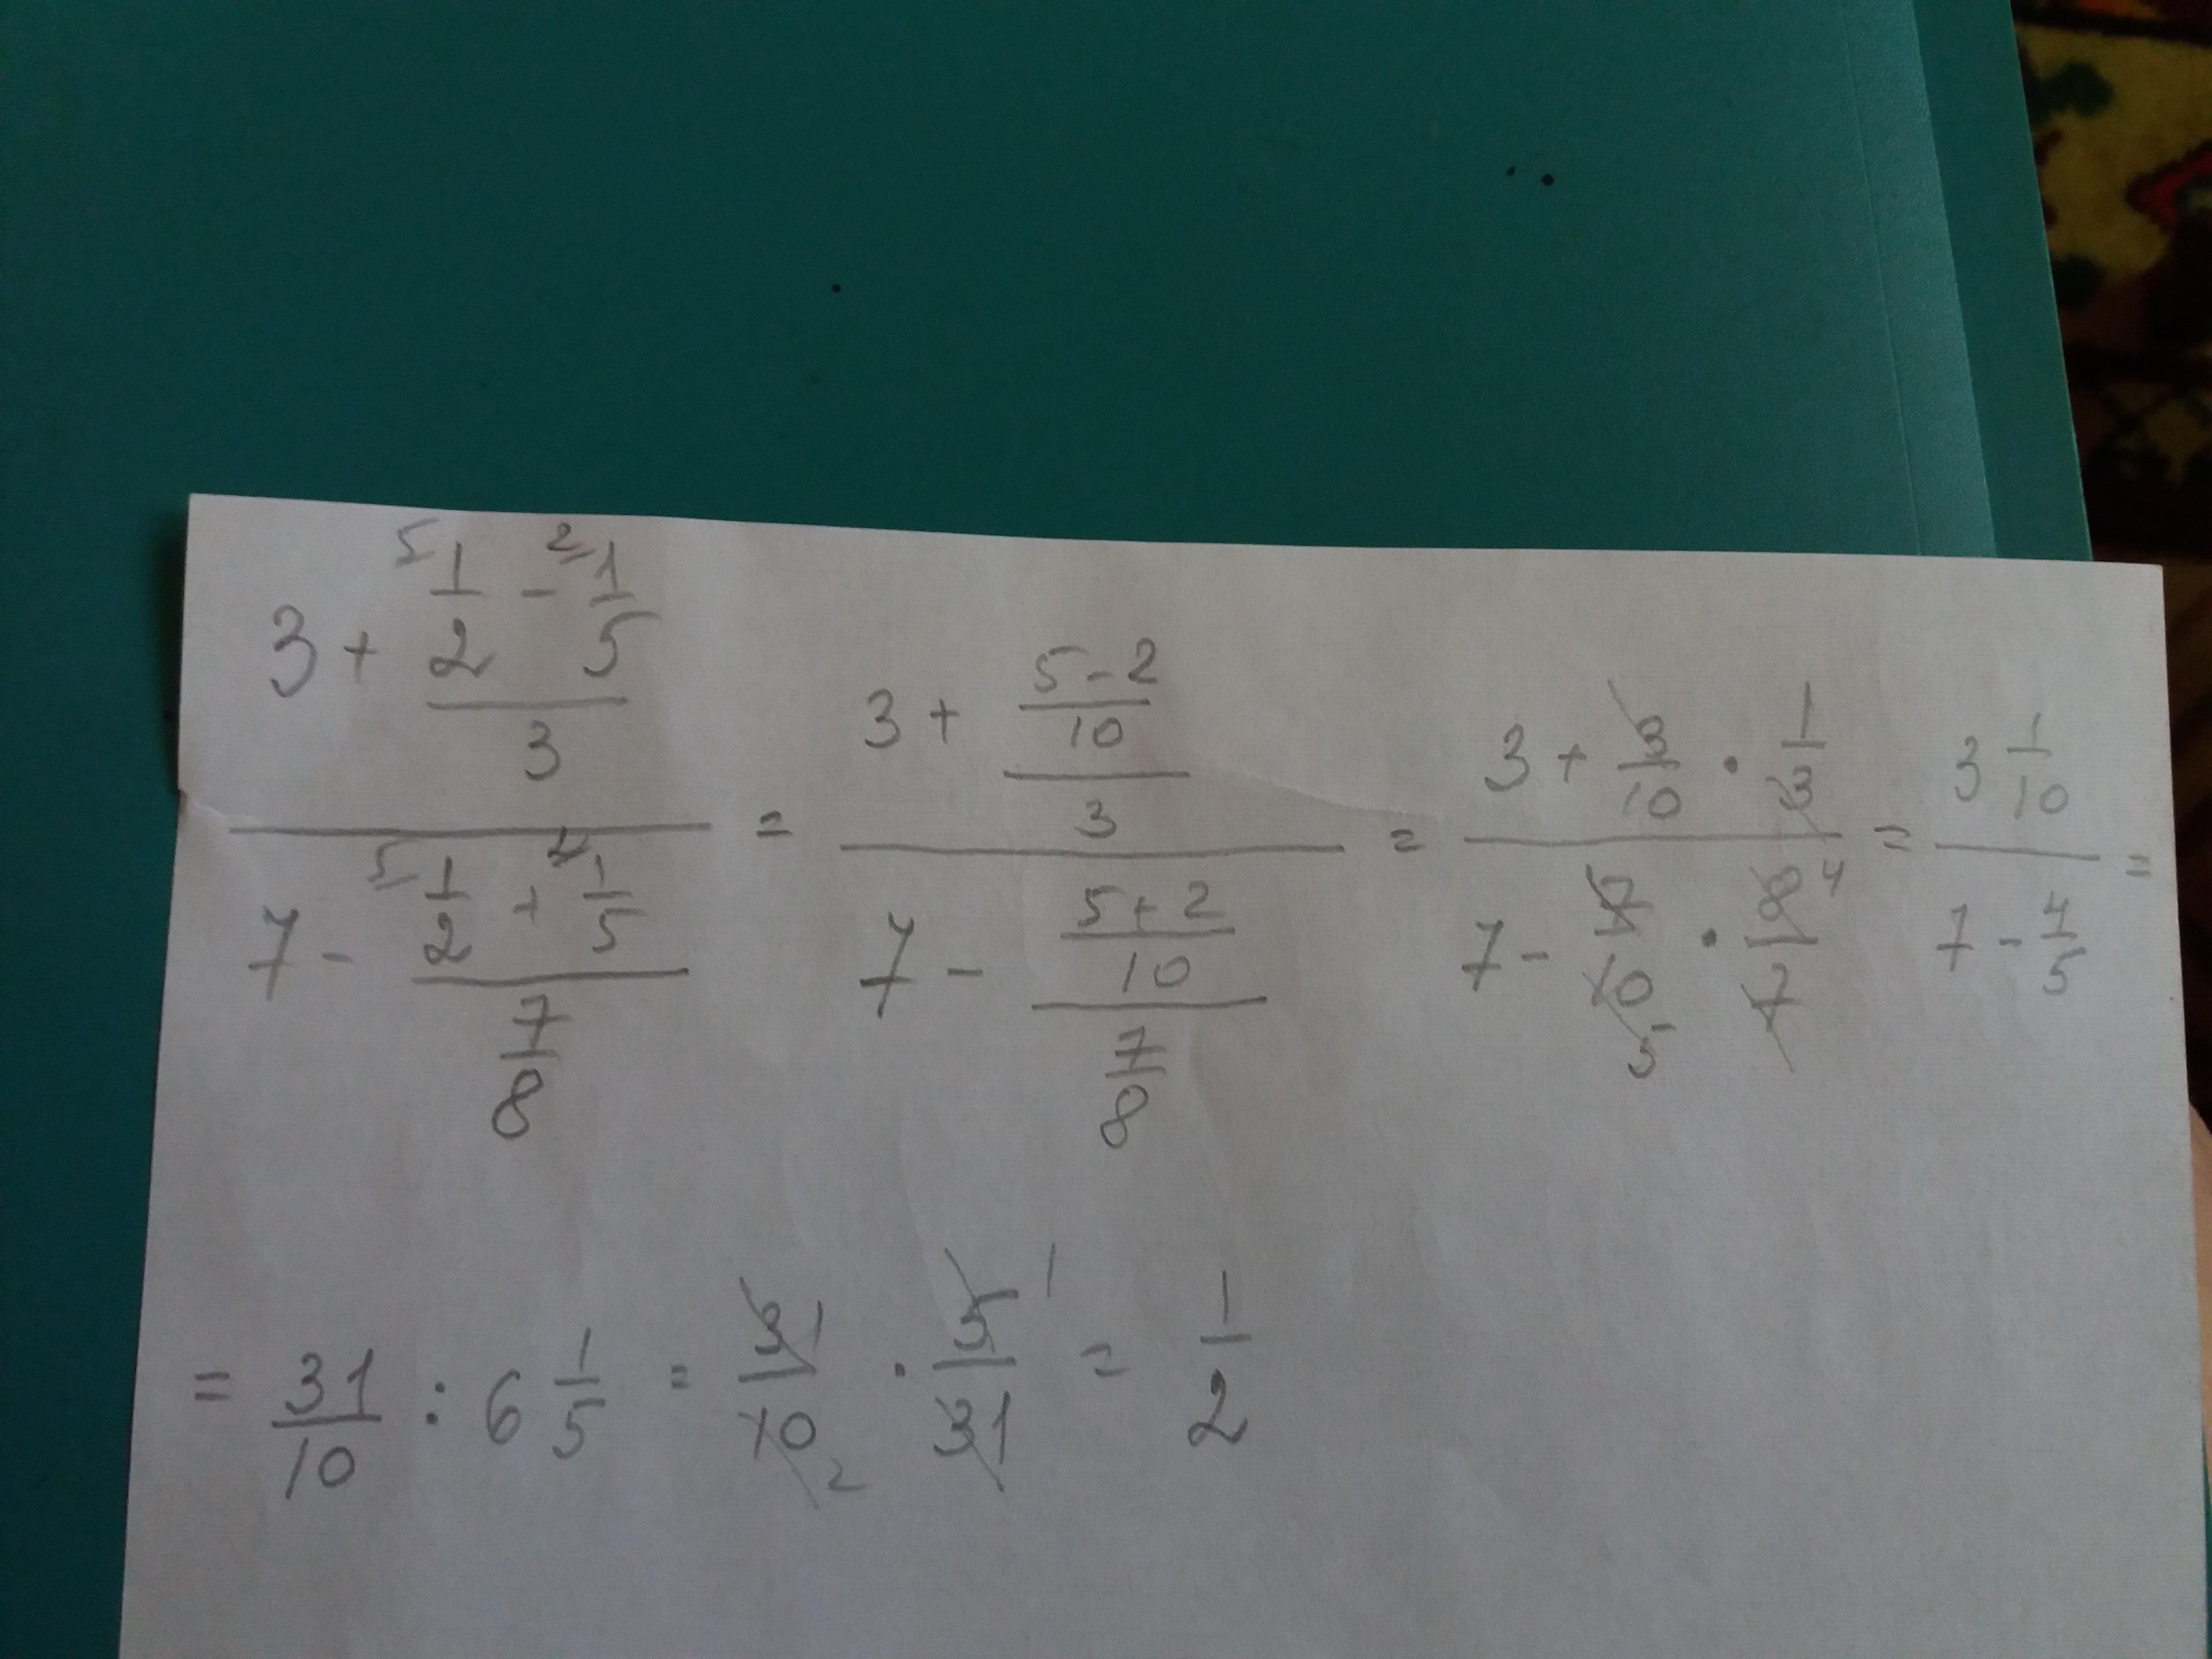 (3 + (⁵⁄1/2 - ²⁄1/5)/3)/(7 - (⁵⁄1/2 + ²⁄1/5)/(7/8)) = (3 + ((5-2)/10)/3)/(7 - ((5+2)/10)/(7/8)) = (3 + 3/10 · 1/3)/(7 - 7/10 5 · 8 4/7) = (3 1/10)/(7 - 4/5) =
= 31/10 : 6 1/5 = 31/10 2 · 5 1/31 = 1/2